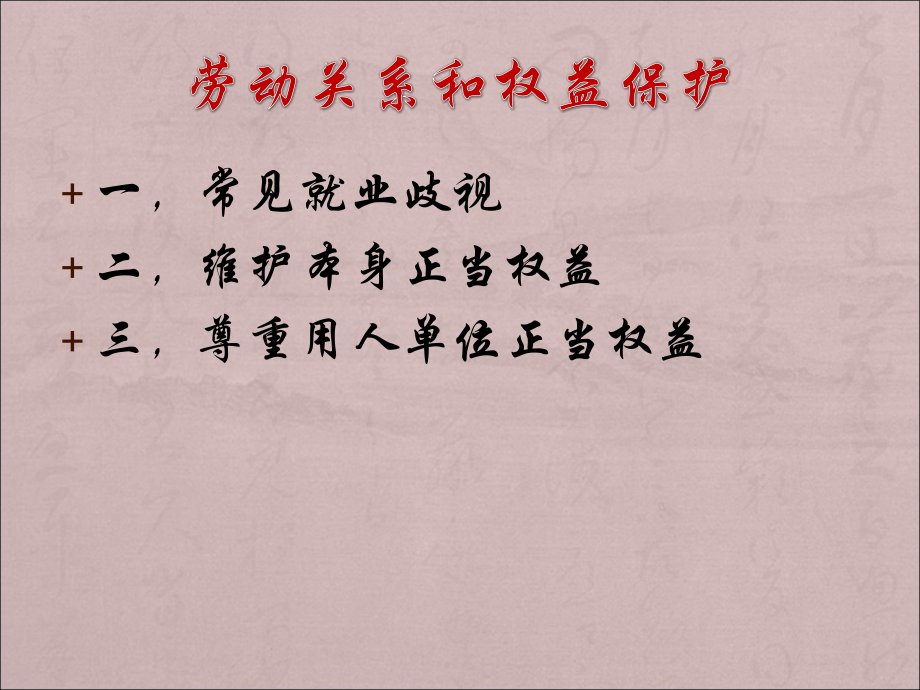 劳动关系和权益保护
+ 一，常见就业歧视
+ 二，维护本身正当权益
+ 三，尊重用人单位正当权益